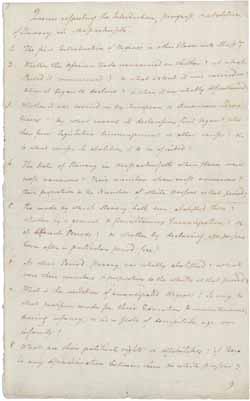 Queries respecting the Introduction, progress & abolition
of Slavery in Massachusetts.
1. The first Introduction of Negroes or other Slaves into Mass.
2. Whether the African trade was carried on thither? at what
Period it commenced? to what extent it was carried on?
when it began to decline? & when it was wholly discontinued?
3. Whether it was carried on by European or American Adven-
turers? to what causes its declension first began? whe-
ther from legislative discouragement or other causes? &
to what causes its abolition is to be ascribed?
4. The State of Slavery in Massachusetts when Slaves were
most numerous? Their numbers when most numerous?
their proportion to the Number of white Persons at that period?
5. The mode by which Slavery hath been abolished there?
whether by a general & simultaneous Emancipation? or
at different Periods? or whether by declaring all persons
born after a particular period free?
6. At what Period Slavery was wholly abolished? & what
were their numbers & proportion to the whites at that period?
7. What is the condition of emancipated Negroes? is any &
what provision made for their Education & maintenance
during infancy, or in a state of decrepitude, age or
insanity?
8. What are their political rights or disabilities? if there
is any discrimination between them & white Persons?
9